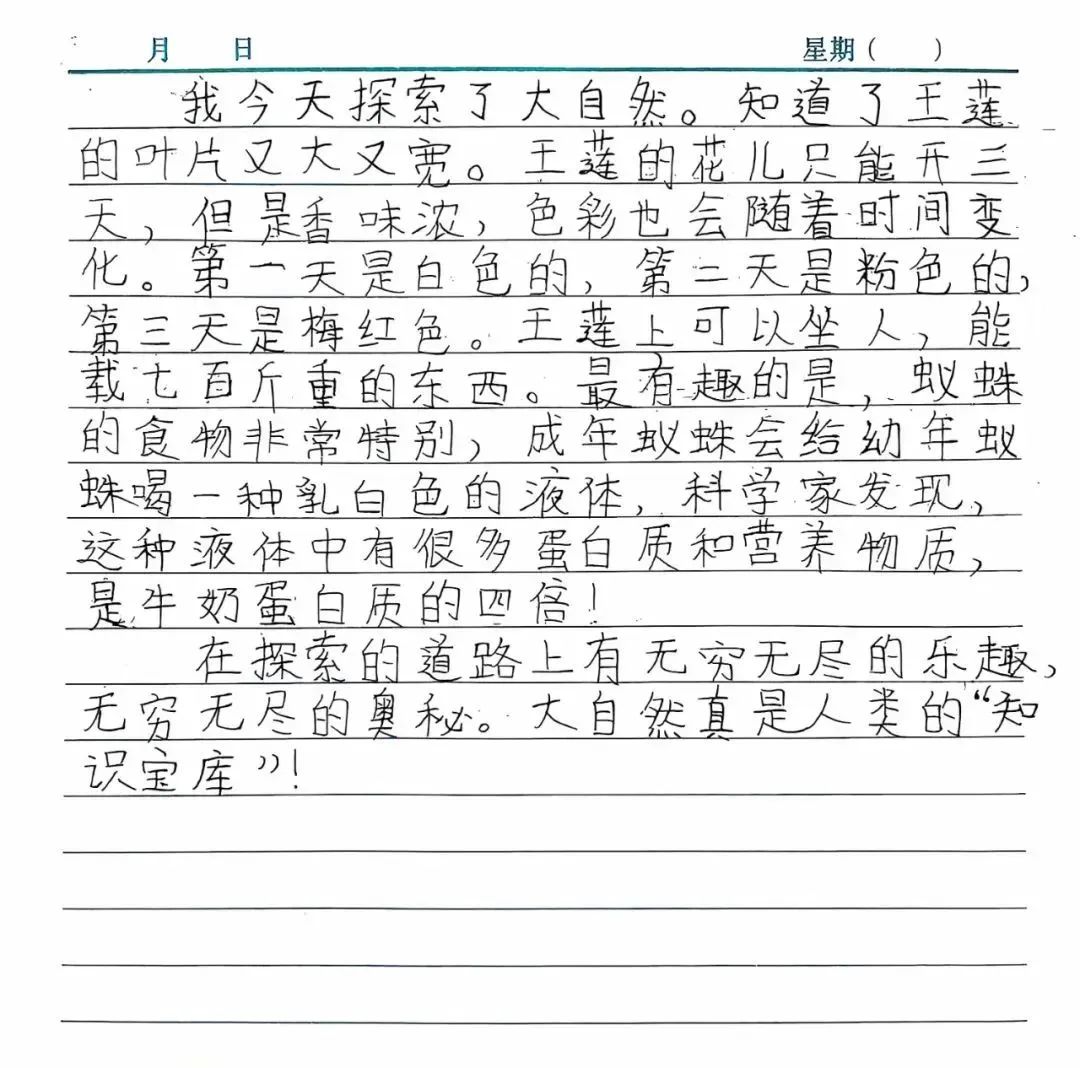 月 日 星期( )
我今天探索了大自然。知道了王莲
的叶片又大又宽。王莲的花儿只能开三
天,但是香味浓,色彩也会随着时间变
化。第一天是白色的,第二天是粉色的,
第三天是梅红色。王莲上可以坐人,能
载七百斤重的东西。最有趣的是,蚁蛛
的食物非常特别,成年蚁蛛会给幼年蚁
蛛喝一种乳白色的液体,科学家发现,
这种液体中有很多蛋白质和营养物质,
是牛奶蛋白质的四倍!
在探索的道路上有无穷无尽的乐趣,
无穷无尽的奥秘。大自然真是人类的“知
识宝库”!